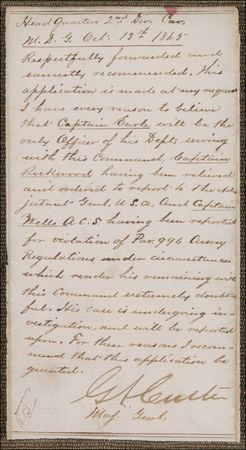 Head Quarters 2nd Div. Cav.
M. D. G. Oct. 13th 1865
Respectfully forwarded and
earnestly recommended. This
application is made at my request
I have every reason to believe
that Captain Earle will be the
only Officer of his Dept. serving
with this Command, Captain
Rockwood having been relieved
and ordered to report to the Ad-
jutant Genl. U.S.A. And Captain
Wells A.C.S. having been reported
for violation of Par. 994 Army
Regulations under circumstances
which render his remaining with
this Command extremely doubt-
ful. His case is undergoing in-
vestigation, and will be reported
upon. For these reasons I recom-
mend that this application be
granted.
G A Custer
Maj Genl.